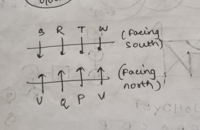 S R T W (Facing
south)
(Facing
north)
V Q P U